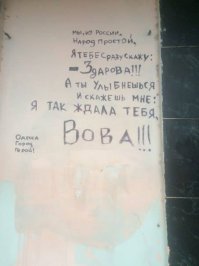 Мы, из России,
Народ простой,
Я тебе сразу скажу:
– Здарова!!!
А ты улыбнешься
и скажешь мне:
Я так ждала тебя,
Вова!!!
Одесса
Город
Герой!